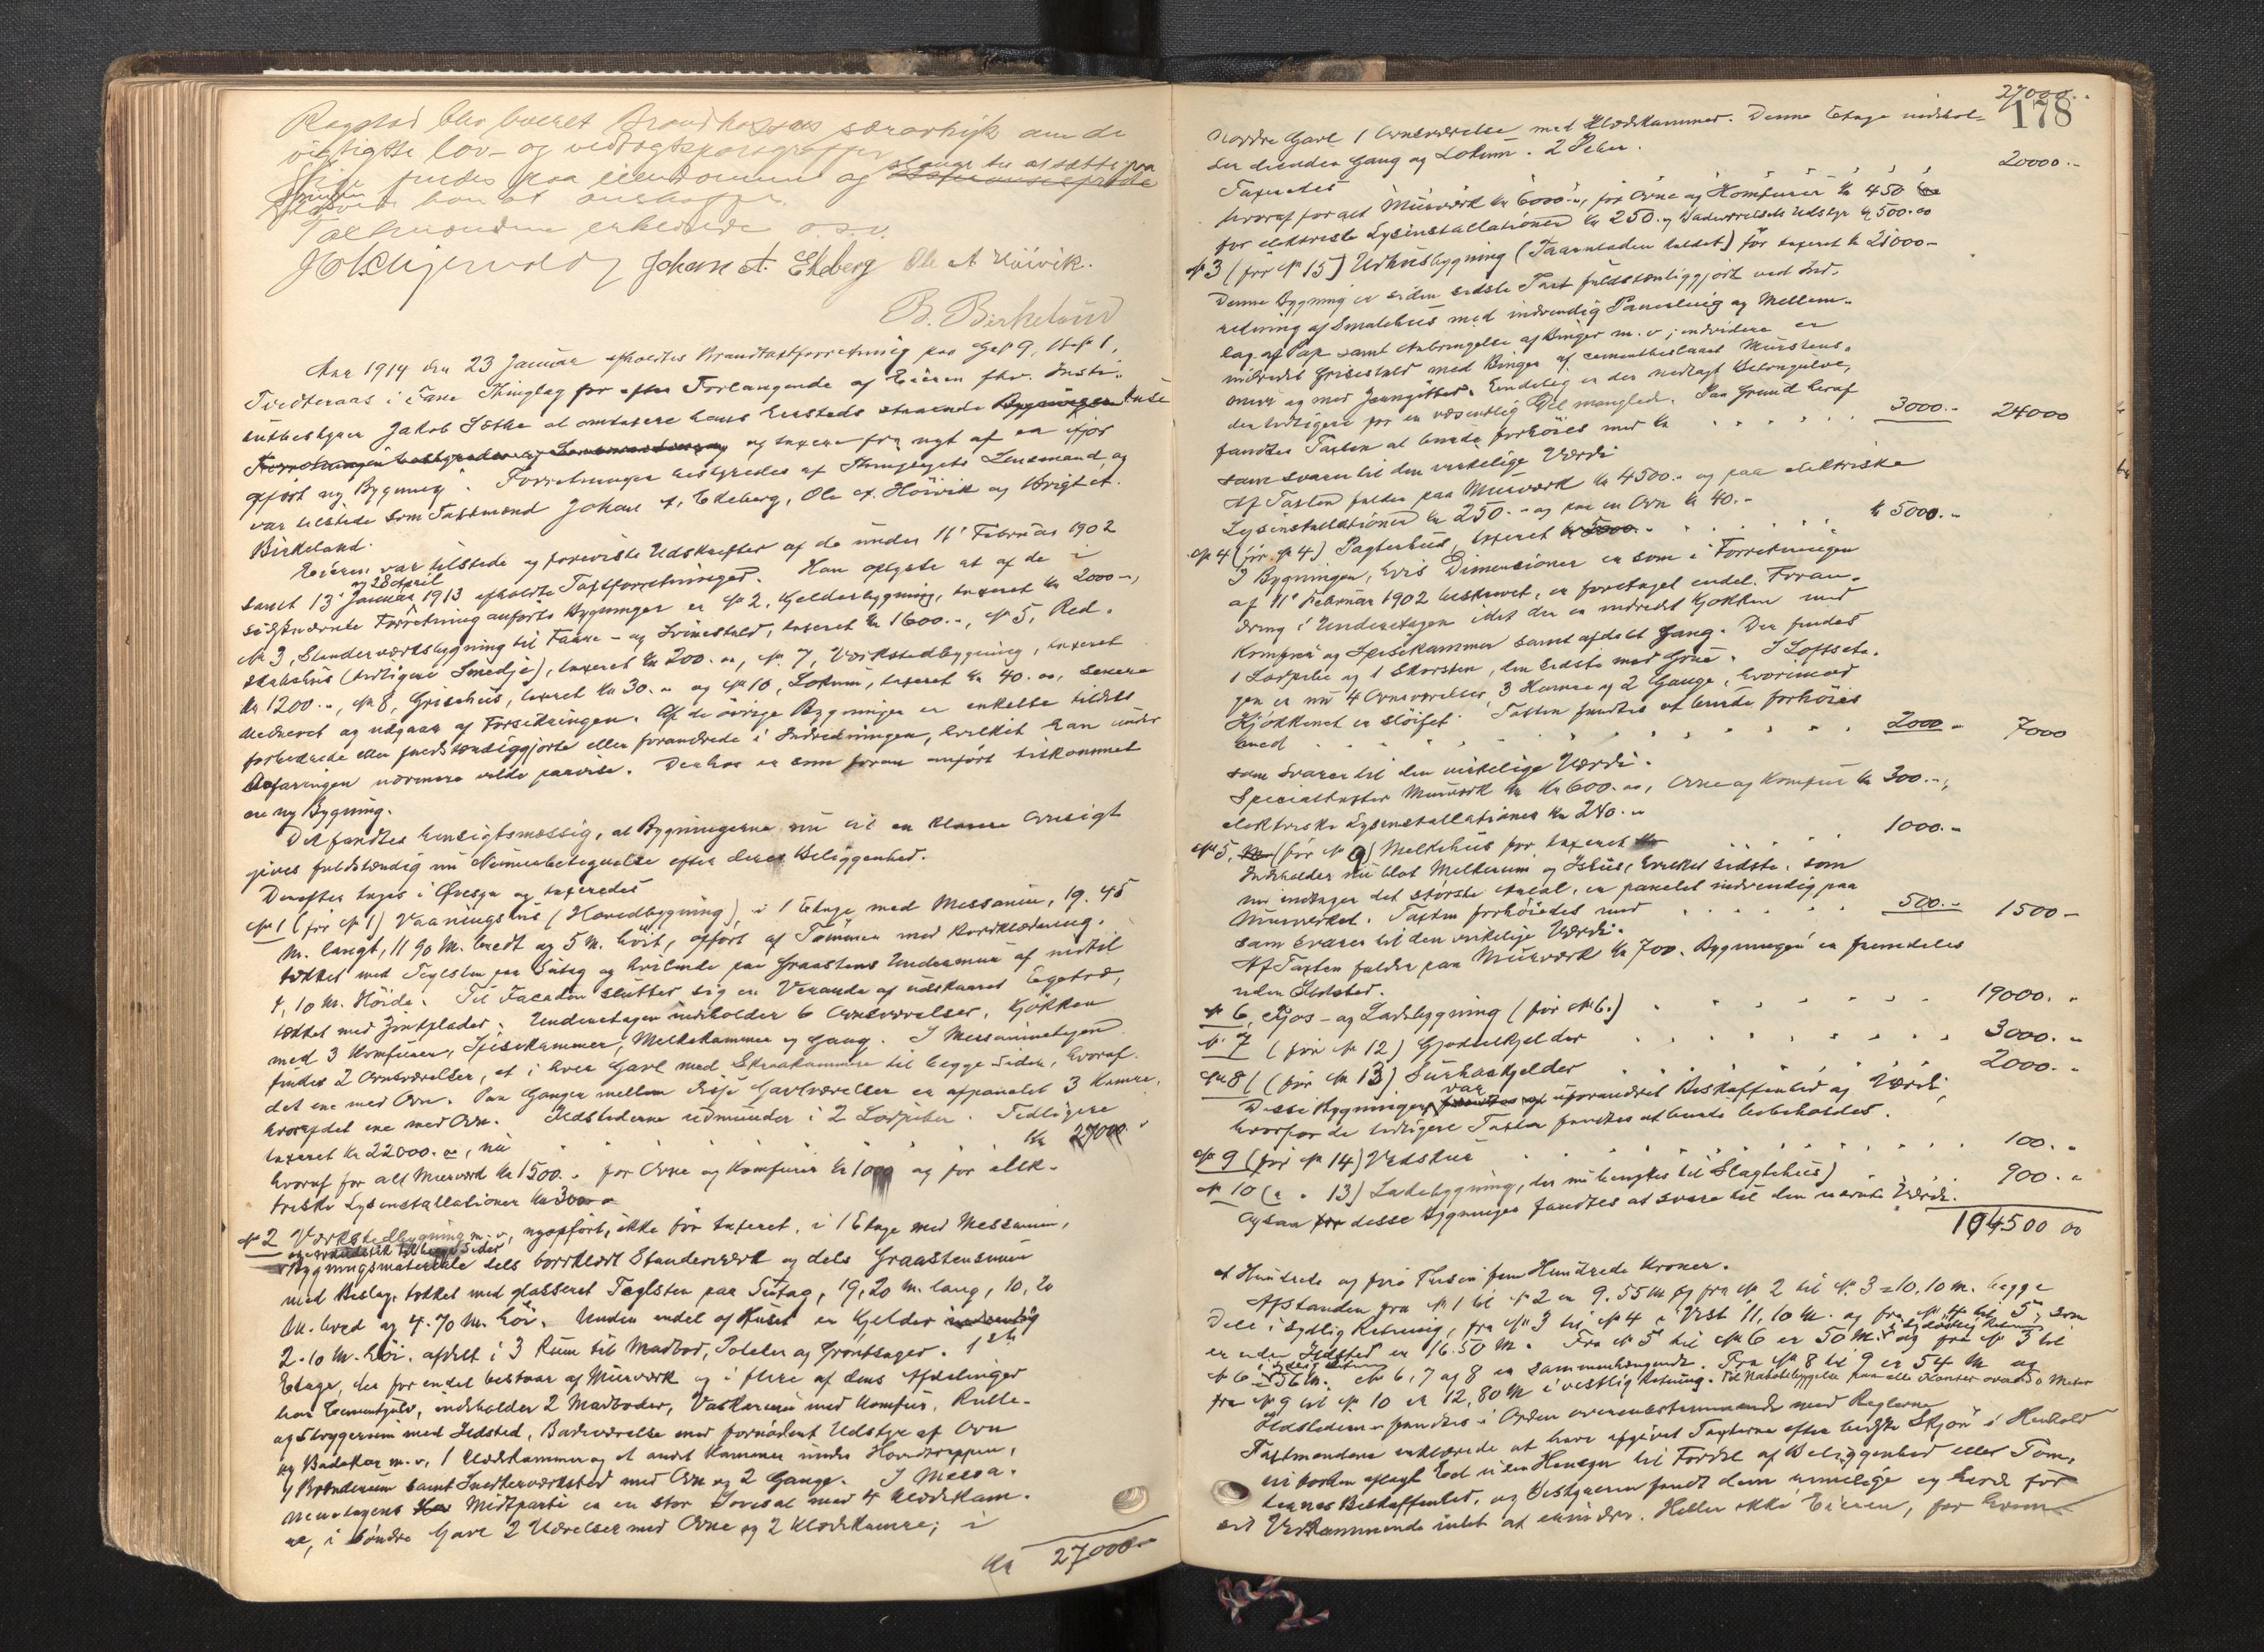 Ragstad blev buret Brandkassens særavtryk av de
vigtigste lov- og vedtægtsparagraffer
findes paa eiendommen og slange til at sætte paa
han at anskaffe.
Takstmændene erklærede o.s.v.
Johan A. Ekeberg Ole A Høivik.
B. Birkeland
Aar 1914 den 23 Januar afholdtes Brandtaxtforretning paa Gs No 9, Bs No 1,
Tvedteraas i Fane Thinglag for efter Forlangende af Eieren fhv. Insti-
tutbestyrer Jakob Sæthe at omtaxere hans Eiersteds staaende Bygninger huse
Forretningen og taxere fra nyt af en ifjor
opført ny Bygning. Forretningen bestyredes af Thinglagets Lensmand, og
var tilstede som Taxtmænd Johan A. Ekeberg, Ole A. Høivik og Brigt A.
Birkeland.
Eieren var tilstede og foreviste Udskrifter af de under 11' Februar 1902
og 28 April
samt 13' Januar 1913 afholdte Taxtforretninger. Han oplyste at af de i
sidstnævnte Forretning anførte Bygninger er No 2, Kjelderbygning, taxeret Kr 2000 –,
No 3, Stenderværksbygning til Faare- og Svinestald, taxeret Kr 1600.–, No 5, Red-
skabshus (tidligere Smedje), taxeret Kr 200.00, No 7, Værkstedbygning, taxeret
Kr 1200.–, No 8, Grisehus, taxeret Kr 30.– og No 10, Lokum, taxeret Kr 40.00, senere
nedrevet og udgaar af Forsikringen. Af de øvrige Bygninger er enkelte tildels
forbedrede eller fuldstændiggjorte eller forandrede i Indredningen, hvilket han under
Befaringen nærmere vilde paavise. Derhos er som foran anført tilkommet
en ny Bygning.
Det fandtes hensigtsmæssig, at Bygningerne nu til en klarere Oversigt
gives fuldstændig ny Nummerbetegnelse efter deres Beliggenhed.
Derefter toges i Øiesyn og taxeredes
No 1 (før No 1) Vaaningshus (Hovedbygning), i 1 Etage med Messanin, 19.45
M. langt, 11 90 M. bredt og 5 M. høit, opført af Tømmer med Bordklædning,
tækket med Teglsten paa Sutag og hvilende paa Graastens Undermur af indtil
1,10 M. Høide. Til Facaden slutter sig en Veranda af udskaaret Egetræ,
tækket med Zinkplader. Underetagen indholder 6 Ovnsværelser, Kjøkken
med 3 Komfurer, Spisekammer, Melkekammer og Gang. I Messaninetagen
findes 2 Ovnsværelser, et i hver Gavl med Skraakammere til begge Sider, hvoraf
det ene med Ovn. Paa Gangen mellem disse Gavlværelser er afpanelet 3 Kamre,
hvoraf det ene med Ovn. Ildstederne udmunder i 2 Lodpiber. Tidligere
taxeret Kr 22000.00, nu Kr 27000 "
hvoraf for alt Murværk Kr 1500.– for Ovne og Komfurer Kr 1000 og for elek-
triske Lysinstallationer Kr 300.–
No 2 Værkstedbygning m.v., nyopført, ikke før taxeret, i 1 Etage med Messanin,
Bygningsmateriale dels bordklædt Stenderværk og dels Graastensmur
med Beslag, tækket med glasseret Teglsten paa Sutag, 19,20 M. lang, 10,20
M. bred og 4.70 M. høi. Under endel af Huset er Kjelder
2.10 M. høi, afdelt i 3 Rum til Madbod, Poteter og Grøntsager. 1ste
Etage, der for endel bestaar af Murværk og i flere af dens Afdelinger
har Cementgulv, indholder 2 Madboder, Vaskerum med Komfur, Rulle-
og Strygerum med Ildsted, Badeværelse med fornødent Udstyr af Ovn
og Badekar m.v., 1 Klædekammer og et andet Kammer under Hovedtrappen,
1 Brænderum samt Snedkerværksted med Ovn og 2 Gange. I Messa-
ninetagens Midtparti er en stor Sovesal med 4 Klædekam-
re, i søndre Gavl 2 Værelser med Ovne og 2 Klædekamre; i
Kr 27000.–
27000.–
178
Nordre Gavl 1 Ovnsværelse med Klædekammer. Denne Etage indehol-
der desuden Gang og Lokum. 2 Piber.
Taxeredes 20000.–
hvoraf for alt Murværk Kr 6000.–, for Ovne og Komfurer Kr 450
for elektriske Lysinstallationer Kr 250.– og Badeværelsets Udstyr Kr 500.00
No 3 (før No 15) Udhusbygning (Taarnladen kaldet) før taxeret Kr 21000 –
Denne Bygning er siden sidste Taxt fuldstændiggjort ved Ind-
redning af Smalehus med indvendig Paneling og Mellem-
lag af Pap samt Anbringelse af Binger m.v; endvidere er
indredet Grisestald med Binger af cementbeslaaet Murstens-
mur og med Jerngitter. Endelig er der nedlagt Betongulve,
der tidligere for en væsentlig Del manglede. Paa Grund heraf
fandtes Taxten at burde forhøies med Kr 3000.– 24000
som svarer til den virkelige Værdi
Af Taxten falder paa Murværk Kr 4500.– og paa elektriske
Lysinstallationer Kr 250.– og paa en Ovn Kr 40.–
No 4 (før No 4) Pagterhus, taxeret Kr 5000.– Kr 5000.–
I Bygningen, hvis Dimensioner er som i Forretningen
af 11' Februar 1902 beskrevet, er foretaget endel Foran-
dring i Underetagen idet der er indredet Kjøkken med
Komfur og Spisekammer samt afdelt Gang. Der findes
1 Lodpibe og 1 Skorsten, den sidste med Grue. I Loftseta-
gen er nu 4 Ovnsværelser, 3 Kamre og 2 Gange, hvorimod
Kjøkkenet er sløifet. Taxten fandtes at burde forhøies
med 2000 – 7000
som svarer til den virkelige Værdi.
Specialtaxter Murværk Kr 600.00, Ovne og Komfur Kr 300.–,
elektriske Lysinstallationer Kr 240.–
No 5, (før No 9) Melkehus før taxeret 1000.–
Indeholder nu blot Melkerum og Ishus, hvilket sidste, som
nu indtager det største Areal, er panelet indvendig paa
Murværket. Taxten forhøiedes med 500.– 1500 –
som svarer til den virkelige Værdi.
Af Taxten falder paa Murværk Kr 700. Bygningen er fremdeles
uden Ildsted.
No 6, Fjøs- og Ladebygning (før No 6.) 19000. "
No 7 (før No 12) Gjødselkjelder 3000. "
No 8 (før No 13) Surhøkjelder 2000. "
Disse Bygninger var uforandret Beskaffenhed og Værdi,
hvorfor de tidligere Taxter fandtes at burde bibeholdes.
No 9 (før No 14) Vedskur 100. "
No 10 (" " 13) Ladebygning, der nu benyttes til Slagtehus) 900. "
Ogsaa disse Bygninger fandtes at svare til den nævnte Værdi.
104500 00
et Hundrede og fire Tusen fem Hundrede Kroner.
Afstanden fra No 1 til No 2 er 9.55 M og fra No 2 til No 3 = 10.10 M. begge
Dele i sydlig Retning, fra No 3 til No 4 i Vest 11,10 M. og fra No 4 til 5, som
er uden Ildsted er 16.50 M. Fra No 5 til No 6 er 50 M. og fra No 3 til
No 6 = 56 M. No 6, 7 og 8 er sammenhængende. Fra No 8 til 9 er 54 M og
fra No 9 til No 10 er 12,80 M i vestlig Retning. Til Nabobebyggelse paa alle Kanter over 50 Meter
Ildstederne fandtes i Orden overensstemmende med Reglerne
Taxtmændene erklærede at have afgivet Taxterne efter bedste Skjøn i Henhold
til forhen aflagt Ed uden Hensyn til Fordel af Beliggenhed eller Tom-
ternes Beskaffenhed, og Bestyreren fandt dem rimelige og havde for
sit Vedkommende intet at erindre. Heller ikke Eieren, for hvem